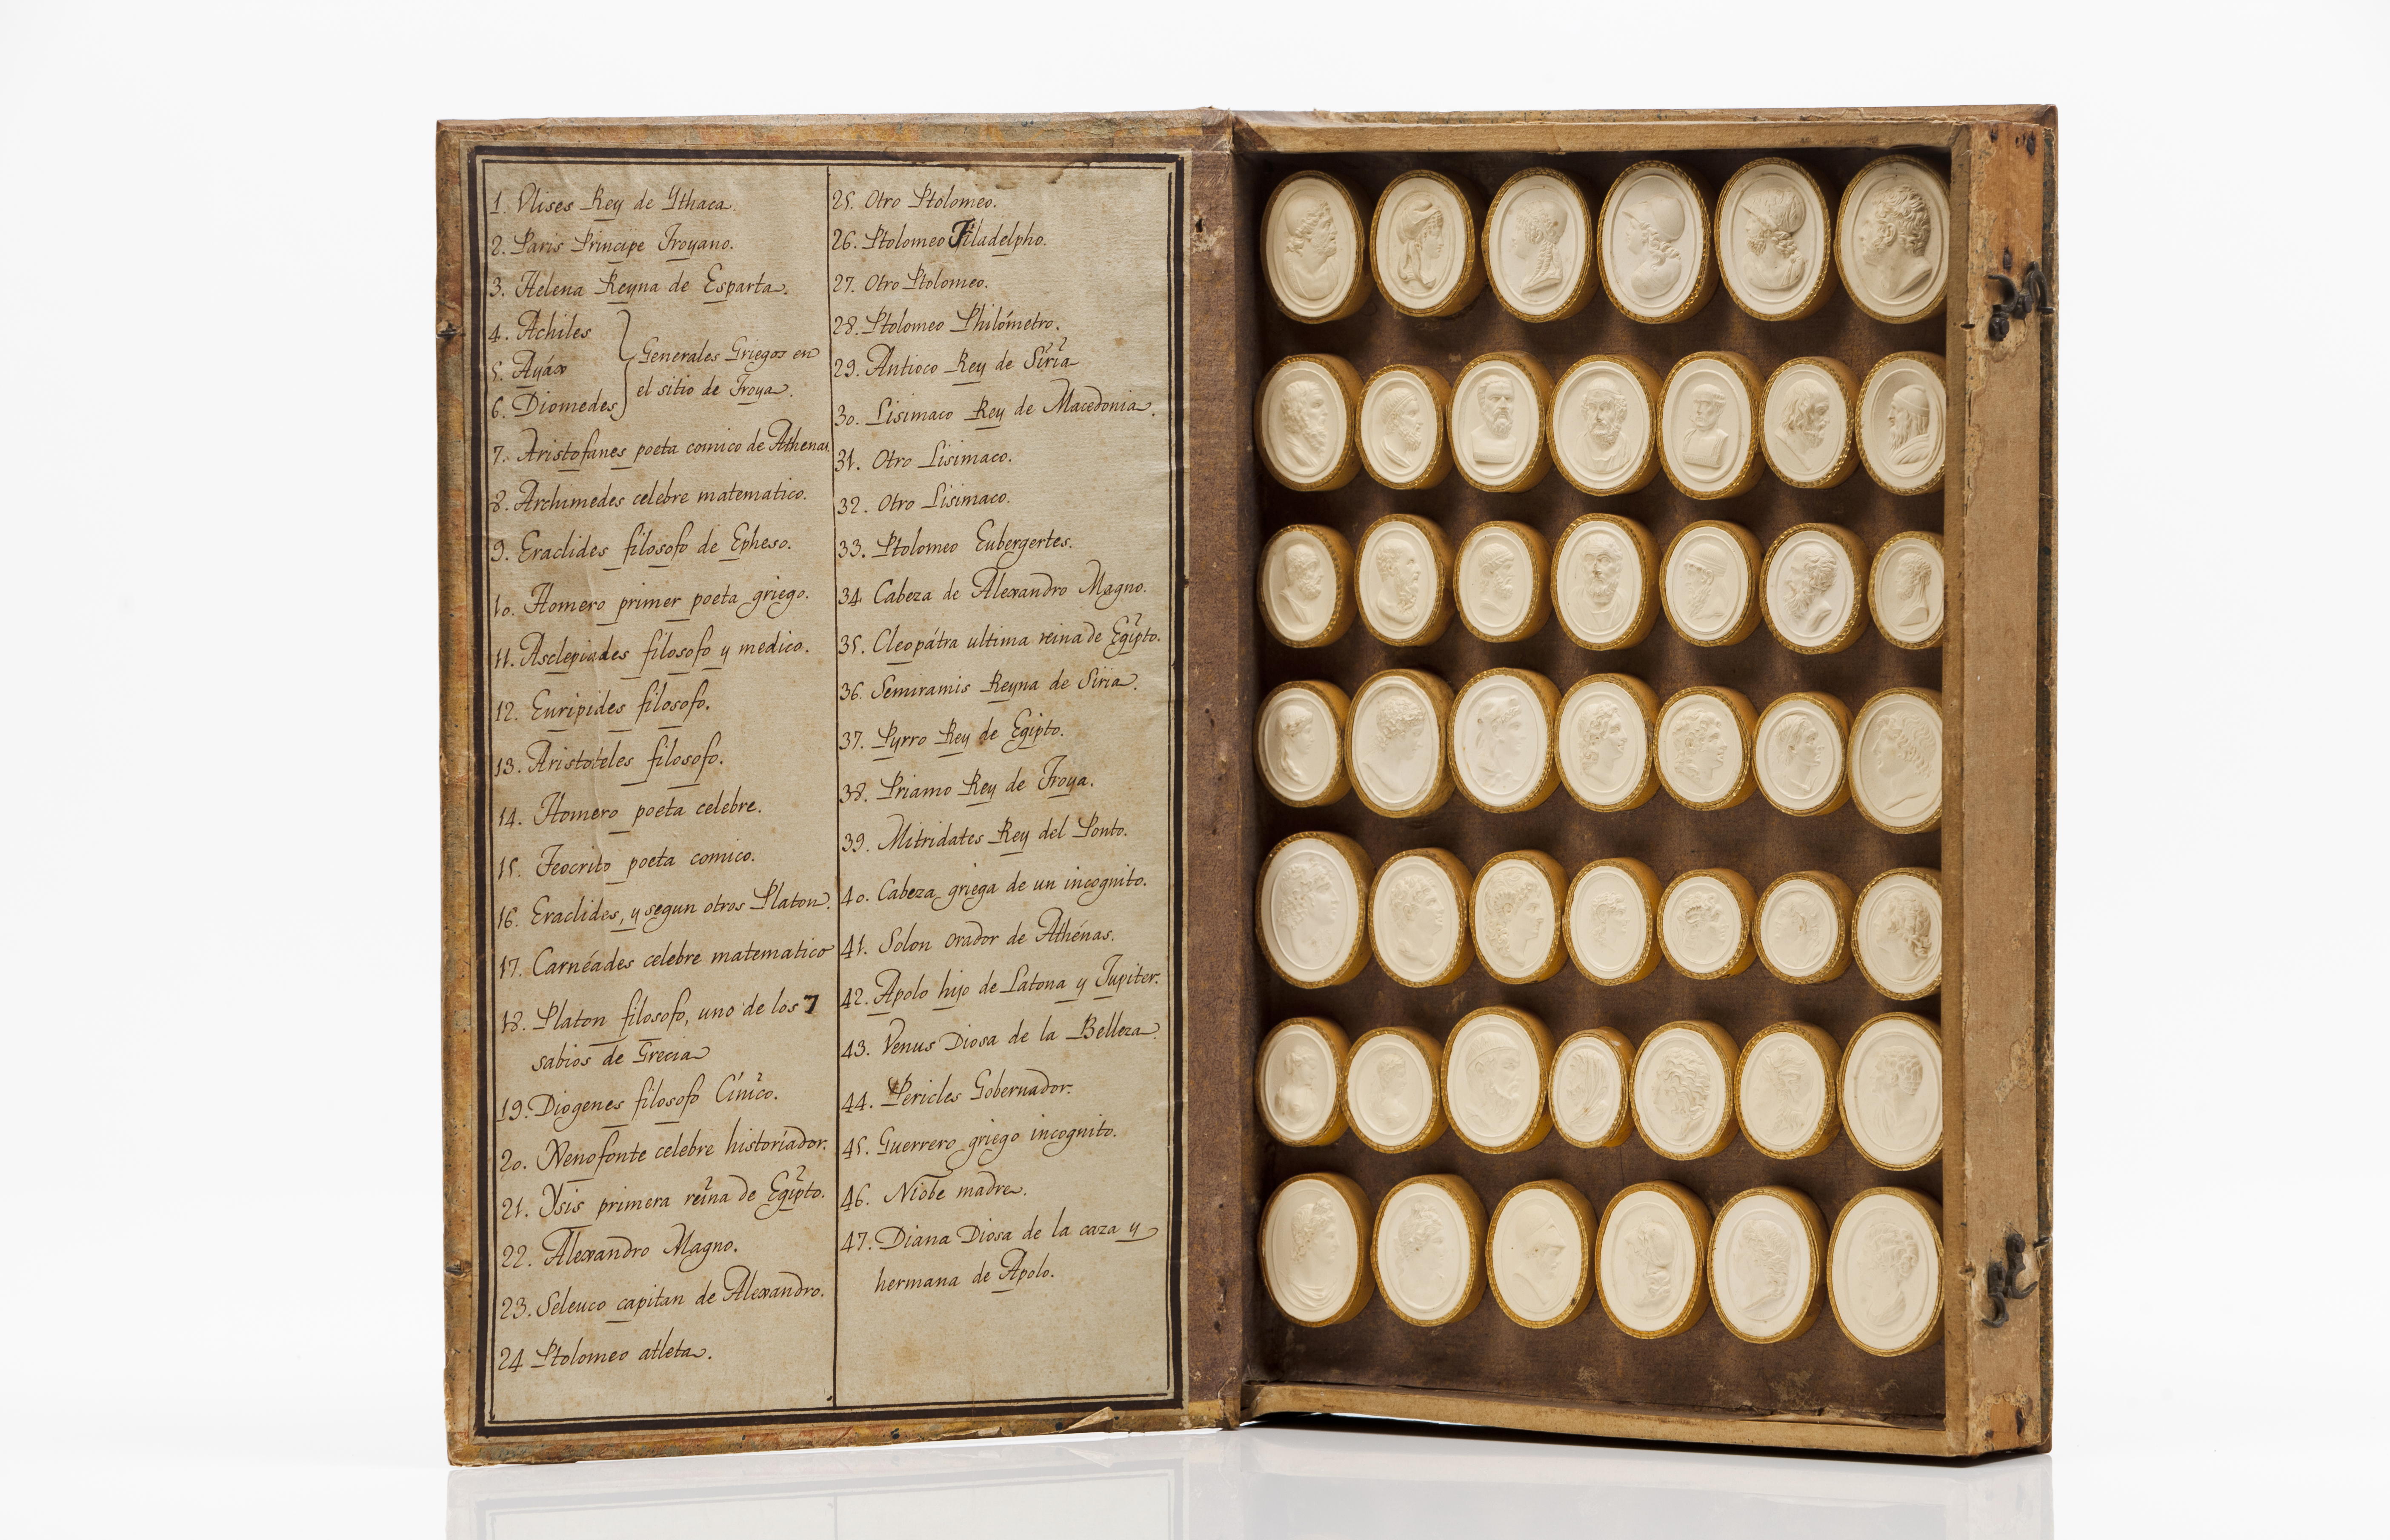 1. Vlises Rey de Ythaca.
2. Paris Principe Troyano.
3. Helena Reyna de Esparta.
4. Achiles
5. Ayáx
6. Diomedes
Generales Griegos en
el sitio de Troya.
7. Aristofanes poeta comico de Athenas.
8. Archimedes celebre matematico.
9. Eraclides filosofo de Epheso.
10. Homero primer poeta griego.
11. Asclepiades filosofo y medico.
12. Euripides filosofo.
13. Aristoteles filosofo.
14. Homero poeta celebre.
15. Teocrito poeta comico.
16. Eraclides, y segun otros Platon.
17. Carnéades celebre matematico
18. Platon filosofo, uno de los 7
sabios de Grecia
19. Diogenes filosofo Cínico.
20. Xenofonte celebre historiador.
21. Ysis primera reina de Egipto.
22. Alexandro Magno.
23. Seleuco capitan de Alexandro.
24 Ptolomeo atleta.
25. Otro Ptolomeo.
26. Ptolomeo Filadelpho.
27. Otro Ptolomeo.
28. Ptolomeo Philómetro.
29. Antioco Rey de Siria
30. Lisimaco Rey de Macedonia.
31. Otro Lisimaco.
32. Otro Lisimaco.
33. Ptolomeo Eubergertes.
34 Cabeza de Alexandro Magno.
35. Cleopátra ultima reina de Egipto.
36. Semiramis Reyna de Siria.
37. Pyrro Rey de Egipto.
38. Priamo Rey de Troya.
39. Mitridates Rey del Ponto.
40. Cabeza griega de un incognito.
41. Solon orador de Athénas.
42. Apolo hijo de Latona y Jupiter.
43. Venus Diosa de la Belleza.
44. Pericles Gobernador.
45. Guerrero griego incognito.
46. Niobe madre.
47. Diana Diosa de la caza y
hermana de Apolo.